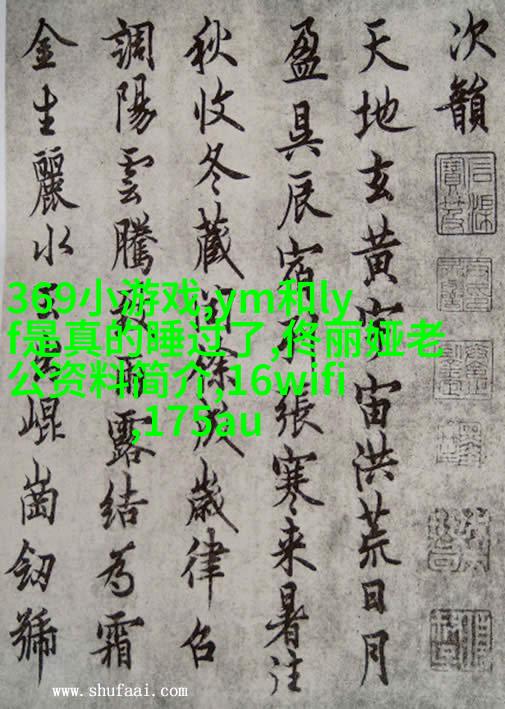 次韻
天地玄黄宇宙洪荒日月
盈昃辰宿張寒来暑往
秋收冬蔵閏餘歲律召
調陽雲騰雨露結為霜
金生麗水崐崗劒號
369小游戏,ym和ly
f是真的睡过了,佟丽娅老
公资料简介,16wifi
,175au
www.shufaai.com